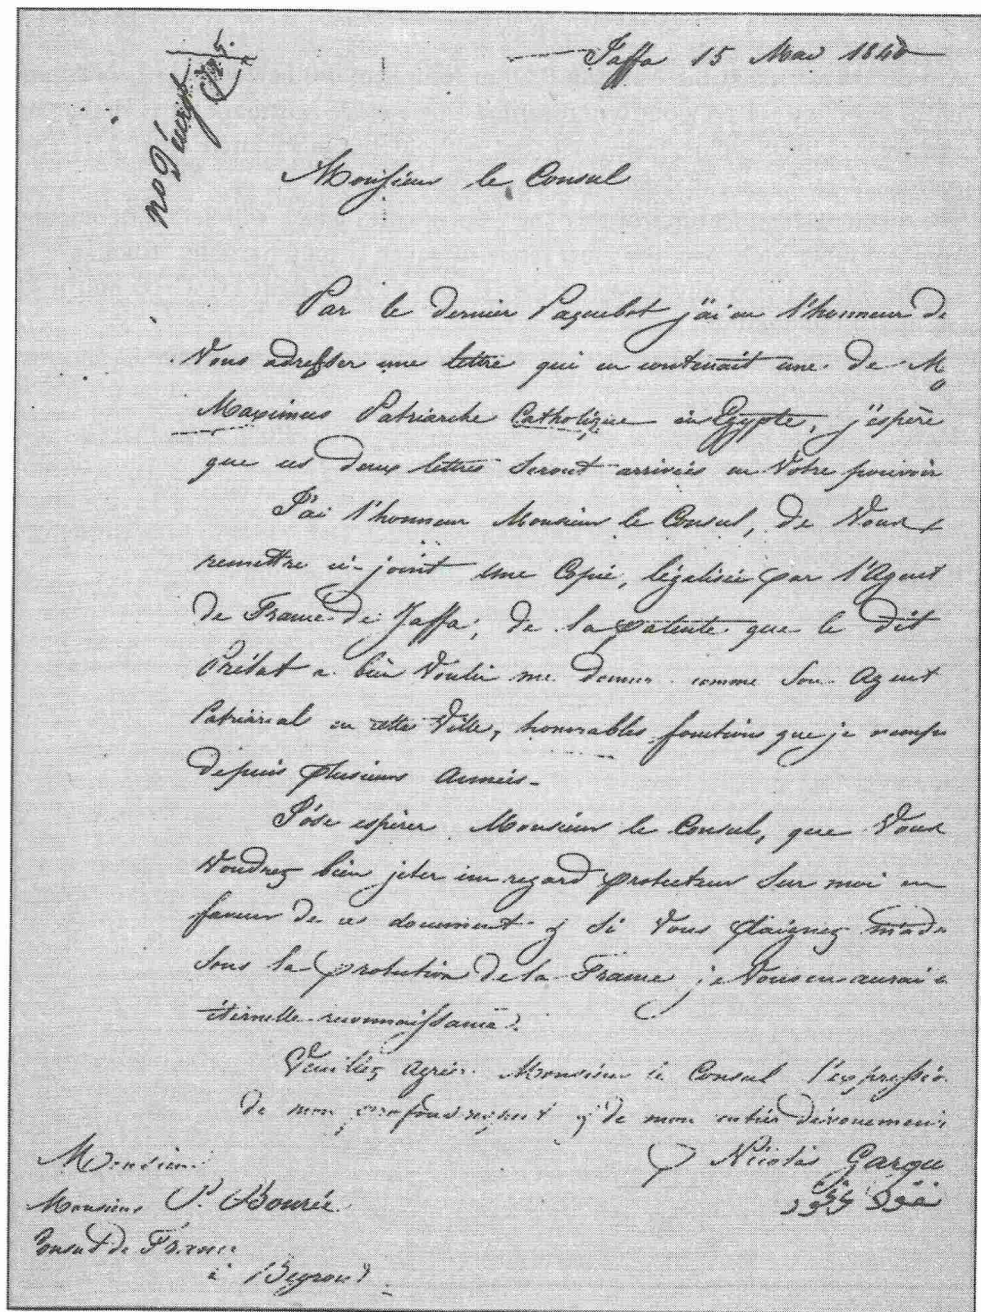 Jaffa 15 Mai 184
Monsieur le Consul
Par le dernier Paquebot j'ai eu l'honneur de
Vous adresser une lettre qui en contenait une de M
Maximus Patriarche Catholique en Egypte, j'espère
que ces deux lettres seront arrivées en Votre pouvoir
J'ai l'honneur Monsieur le Consul, de Vous
remettre ci-joint une Copie, légalisée par l'Agent
de France de Jaffa, de la patente que le dit
Prélat a bien Voulu me donner comme Son Agent
Patriarcal en cette Ville, honorables fonctions que je
depuis plusieurs années.
J'ôse espérer Monsieur le Consul, que Vous
Voudrez bien jeter un regard protecteur Sur moi en
faveur de ces document & Si Vous
Sous la protection de la France je Vous en aurai
éternelle reconnaissance.
Veuillez agréer Monsieur le Consul l'expressio
de mon profond respect & de mon entier dévouement
Nicolas Gargu
Monsieur
Monsieur P. Bourée
Consul de France
à Beyrout